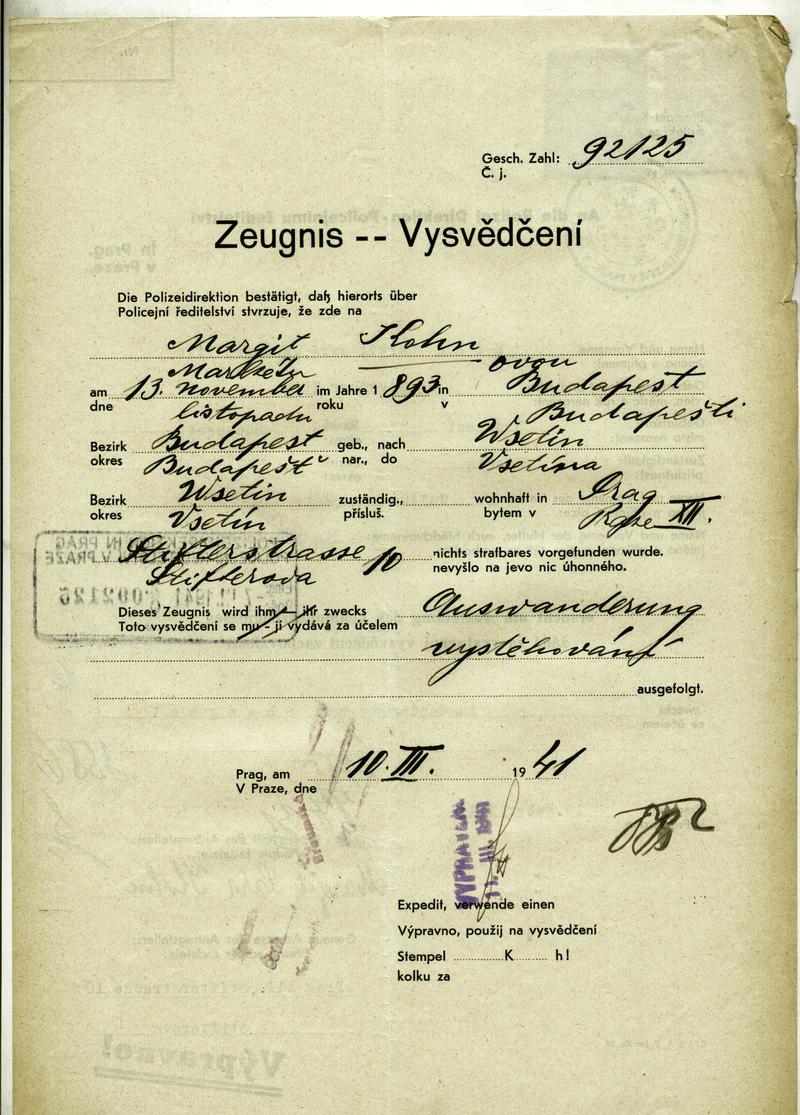 Gesch. Zahl: 92125
Č. j.
Zeugnis -- Vysvědčení
Die Polizeidirektion bestätigt, daß hierorts über
Policejní ředitelství stvrzuje, že zde na
Margit Kohn
Markétu ovou
am 13. november im Jahre 1893 in Budapest
dne listopadu roku v Budapešti
Bezirk Budapest geb., nach Wsetin
okres Budapešť nar., do Vsetína
Bezirk Wsetin zuständig., wohnhaft in Prag
okres Vsetín přísluš. bytem v Praze XII.
Stifterstrasse 10 nichts strafbares vorgefunden wurde.
Stifterova nevyšlo na jevo nic úhonného.
Dieses Zeugnis wird ihm - ihr zwecks Auswanderung
Toto vysvědčení se mu - jí vydává za účelem
vystěhování
ausgefolgt.
Prag, am 10. III. 1941
V Praze, dne
VYPRAVENO
11. III. 1941
Expedit, verwende einen
Výpravno, použij na vysvědčení
Stempel K h!
kolku za